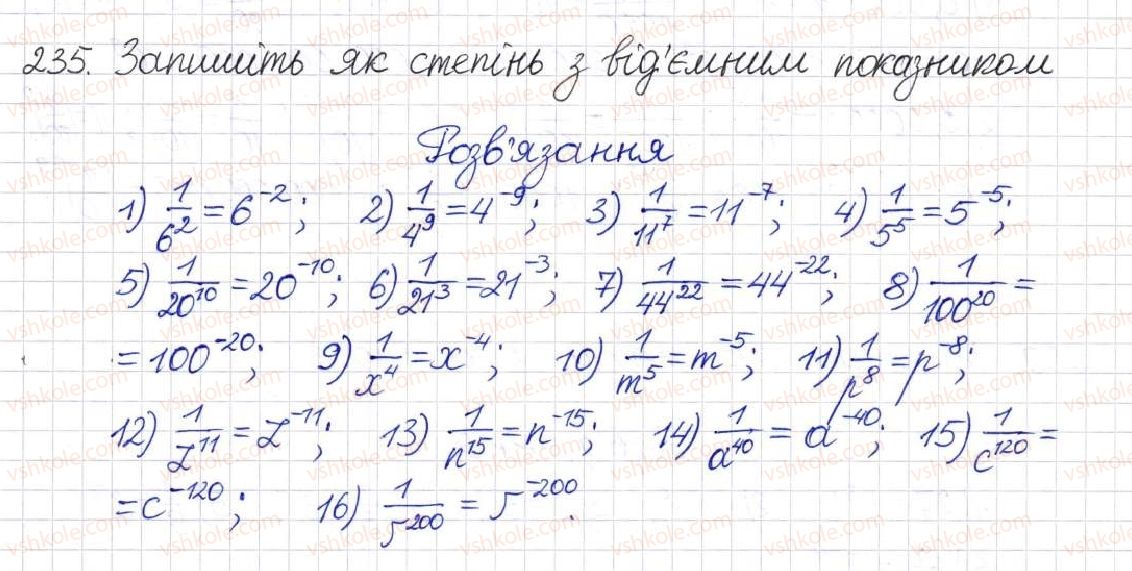 235. Запишіть як степінь з від'ємним показником
Розв'язання
1) 1/6² = 6⁻²; 2) 1/4⁹ = 4⁻⁹; 3) 1/11⁷ = 11⁻⁷; 4) 1/5⁵ = 5⁻⁵;
5) 1/20¹⁰ = 20⁻¹⁰; 6) 1/21³ = 21⁻³; 7) 1/44²² = 44⁻²²; 8) 1/100²⁰ =
= 100⁻²⁰; 9) 1/x⁴ = x⁻⁴; 10) 1/m⁵ = m⁻⁵; 11) 1/p⁸ = p⁻⁸;
12) 1/z¹¹ = z⁻¹¹; 13) 1/n¹⁵ = n⁻¹⁵; 14) 1/a⁴⁰ = a⁻⁴⁰; 15) 1/c¹²⁰ =
= c⁻¹²⁰; 16) 1/5²⁰⁰ = 5⁻²⁰⁰.
vshkole.com